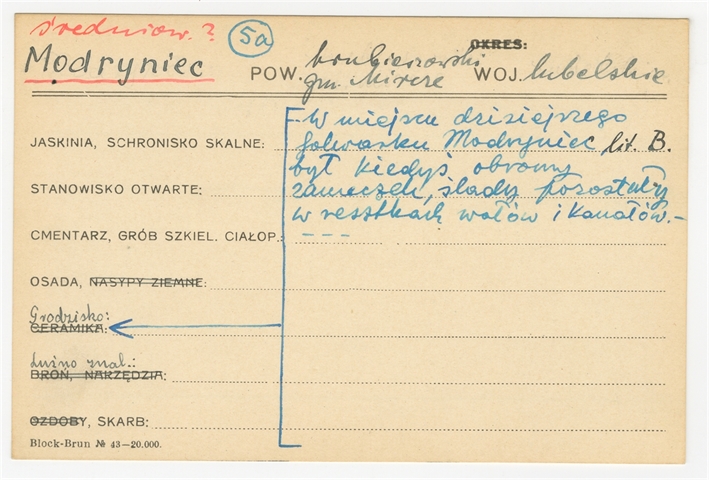 średniow. ?
5a
OKRES:
Modryniec
POW. hrubieszowski
gm. Mircze
WOJ. lubelskie
W miejscu dzisiejszego
JASKINIA, SCHRONISKO SKALNE: folwarku Modryniec lit. B.
był kiedyś obronny
STANOWISKO OTWARTE: zameczek, ślady pozostały
w resztkach wałów i kanałów.-
CMENTARZ, GRÓB SZKIEL. CIAŁOP.: - - -
OSADA, NASYPY ZIEMNE:
Grodzisko:
CERAMIKA:
Luźno znal.:
BROŃ, NARZĘDZIA:
OZDOBY, SKARB:
Block-Brun № 43—20.000.